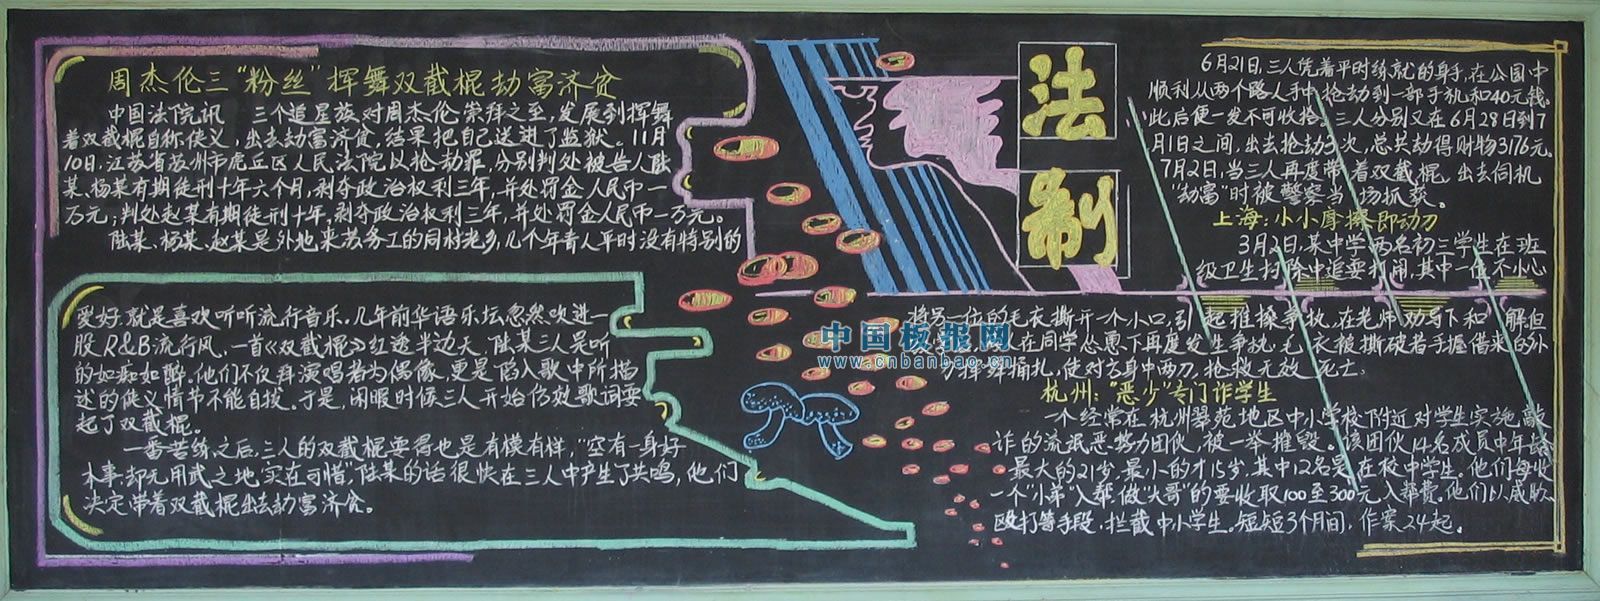 周杰伦三“粉丝”挥舞双截棍劫富济贫
中国法院讯 三个追星族对周杰伦崇拜之至,发展到挥舞
着双截棍自称侠义,出去劫富济贫,结果把自己送进了监狱。11月
10日,江苏省苏州市虎丘区人民法院以抢劫罪,分别判处被告人陆
某、杨某有期徒刑十年六个月,剥夺政治权利三年,并处罚金人民币一
万元;判处赵某有期徒刑十年,剥夺政治权利三年,并处罚金人民币一万元。
陆某、杨某、赵某是外地来苏务工的同村老乡,几个年青人平时没有特别的
爱好,就是喜欢听听流行音乐。几年前华语乐坛忽然吹进一
股R&B流行风,一首《双截棍》红透半边天,陆某三人是听
的如痴如醉。他们不仅拜演唱者为偶像,更是陷入歌中所描
述的侠义情节不能自拔。于是,闲暇时候三人开始仿效歌词耍
起了双截棍。
一番苦练之后,三人的双截棍耍得也是有模有样,“空有一身好
本事,却无用武之地,实在可惜”,陆某的话很快在三人中产生了共鸣,他们
决定带着双截棍出去劫富济贫。
法
制
6月21日,三人凭着平时练就的身手,在公园中
顺利从两个路人手中抢劫到一部手机和40元钱。
此后便一发不可收拾,三人分别又在6月28日到7
月1日之间,出去抢劫3次,总共劫得财物3176元。
7月2日,当三人再度带着双截棍,出去伺机
“劫富”时被警察当场抓获。
上海:小小摩擦即动刀
3月2日,某中学两名初三学生在班
级卫生扫除中追耍打闹,其中一位不小心
将另一位的毛衣撕开一个小口,引起推搡争执,在老师劝导下和解但
在同学怂恿下再度发生争执,毛衣被撕破者手握借来的外
捅扎,使对方身中两刀,抢救无效死亡。
杭州:“恶少”专门诈学生
一个经常在杭州翠苑地区中小学校附近对学生实施敲
诈的流氓恶势力团伙,被一举摧毁。该团伙14名成员中年龄
最大的21岁,最小的才15岁,其中12名是在校中学生。他们每收
一个“小弟”入帮,做“大哥”的要收取100至300元入帮费。他们以威胁、
殴打等手段,拦截中小学生。短短3个月间,作案24起。
中国板报网
www.cnbanbao.cn